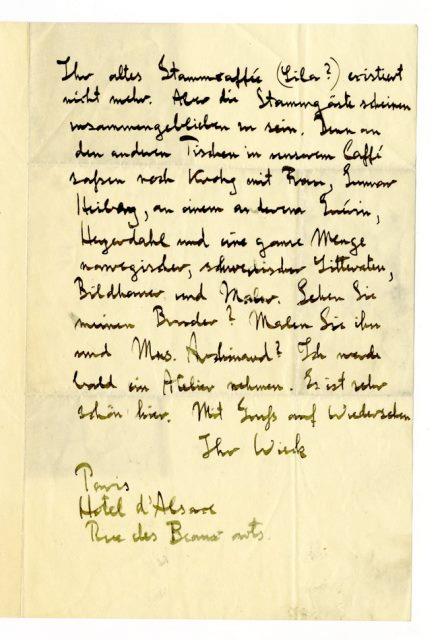 Ihr altes Stammcaffée (Lila?) existiert
nicht mehr. Aber die Stammgäste scheinen
zusammengeblieben zu sein. Denn an
den anderen Tischen in unserem Caffé
saßen noch Krohg mit Frau, Gunnar
Heiberg, an einem anderen
Heyerdahl und eine ganze Menge
norwegischer, schwedischer Litteraten,
Bildhauer und Maler. Sehen Sie
meinen Bruder? Malen Sie ihn
und Mrs. Archinard? Ich werde
bald ein Atelier nehmen. Es ist sehr
schön hier. Mit Gruß auf Wiedersehen
Ihr Wieck
Paris
Hotel d'Alsace
Rue des Beaux arts.